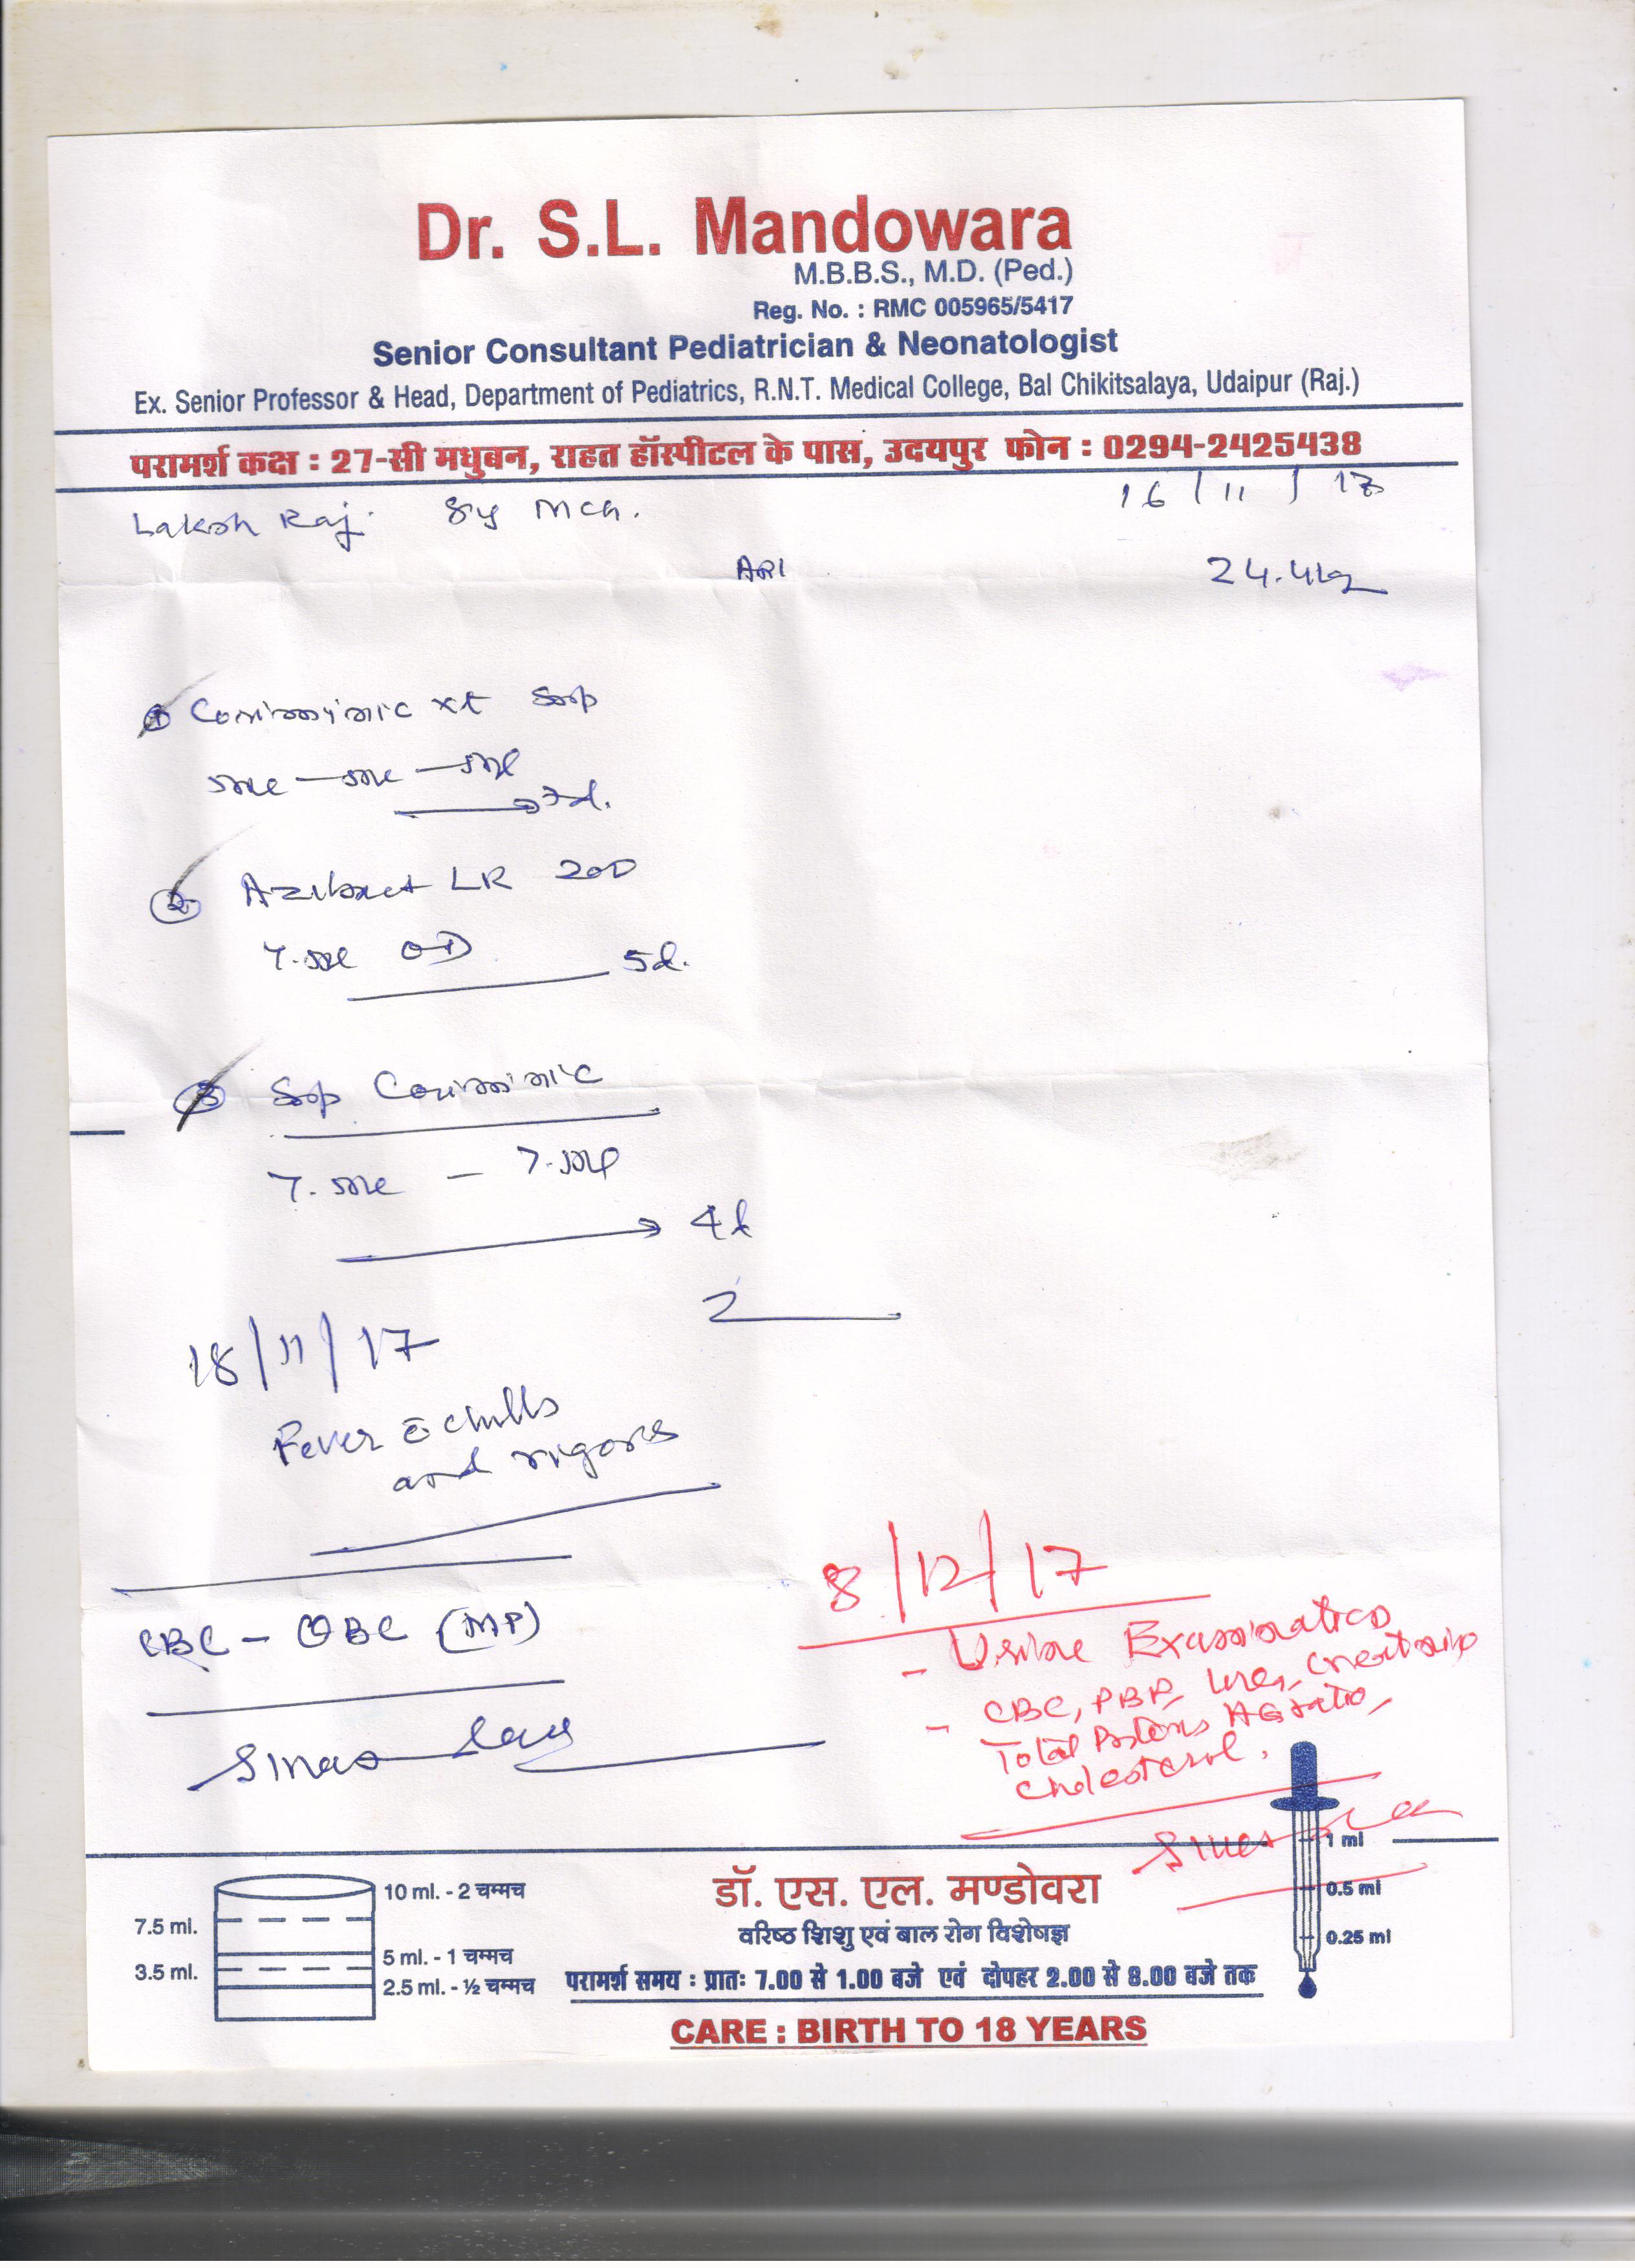 Dr. S.L. Mandowara
M.B.B.S., M.D. (Ped.)
Reg. No. : RMC 005965/5417
Senior Consultant Pediatrician & Neonatologist
Ex. Senior Professor & Head, Department of Pediatrics, R.N.T. Medical College, Bal Chikitsalaya, Udaipur (Raj.)
परामर्श कक्ष : 27-सी मधुबन, राहत हॉस्पीटल के पास, उदयपुर फोन : 0294-2425438
16 / 11 / 17
Laksh Raj. 8y mch.
ARI 24.4kg
① xt Syp
5ml — 5ml — 5ml
7d.
② LR 200
7.5ml OD 5d.
③ Syp
7.5ml – 7.5ml
4d
18/11/17
Fever c̄ chills
and rigors
CBC – QBC (MP)
8/12/17
- Urine Examination
- CBC, PBF, Urea, Creatinine
Total Proteins AG ratio,
Cholesterol.
1 ml
0.5 ml
0.25 ml
10 ml. - 2 चम्मच
7.5 ml.
5 ml. - 1 चम्मच
3.5 ml.
2.5 ml. - ½ चम्मच
डॉ. एस. एल. मण्डोवरा
वरिष्ठ शिशु एवं बाल रोग विशेषज्ञ
परामर्श समय : प्रातः 7.00 से 1.00 बजे एवं दोपहर 2.00 से 8.00 बजे तक
CARE : BIRTH TO 18 YEARS